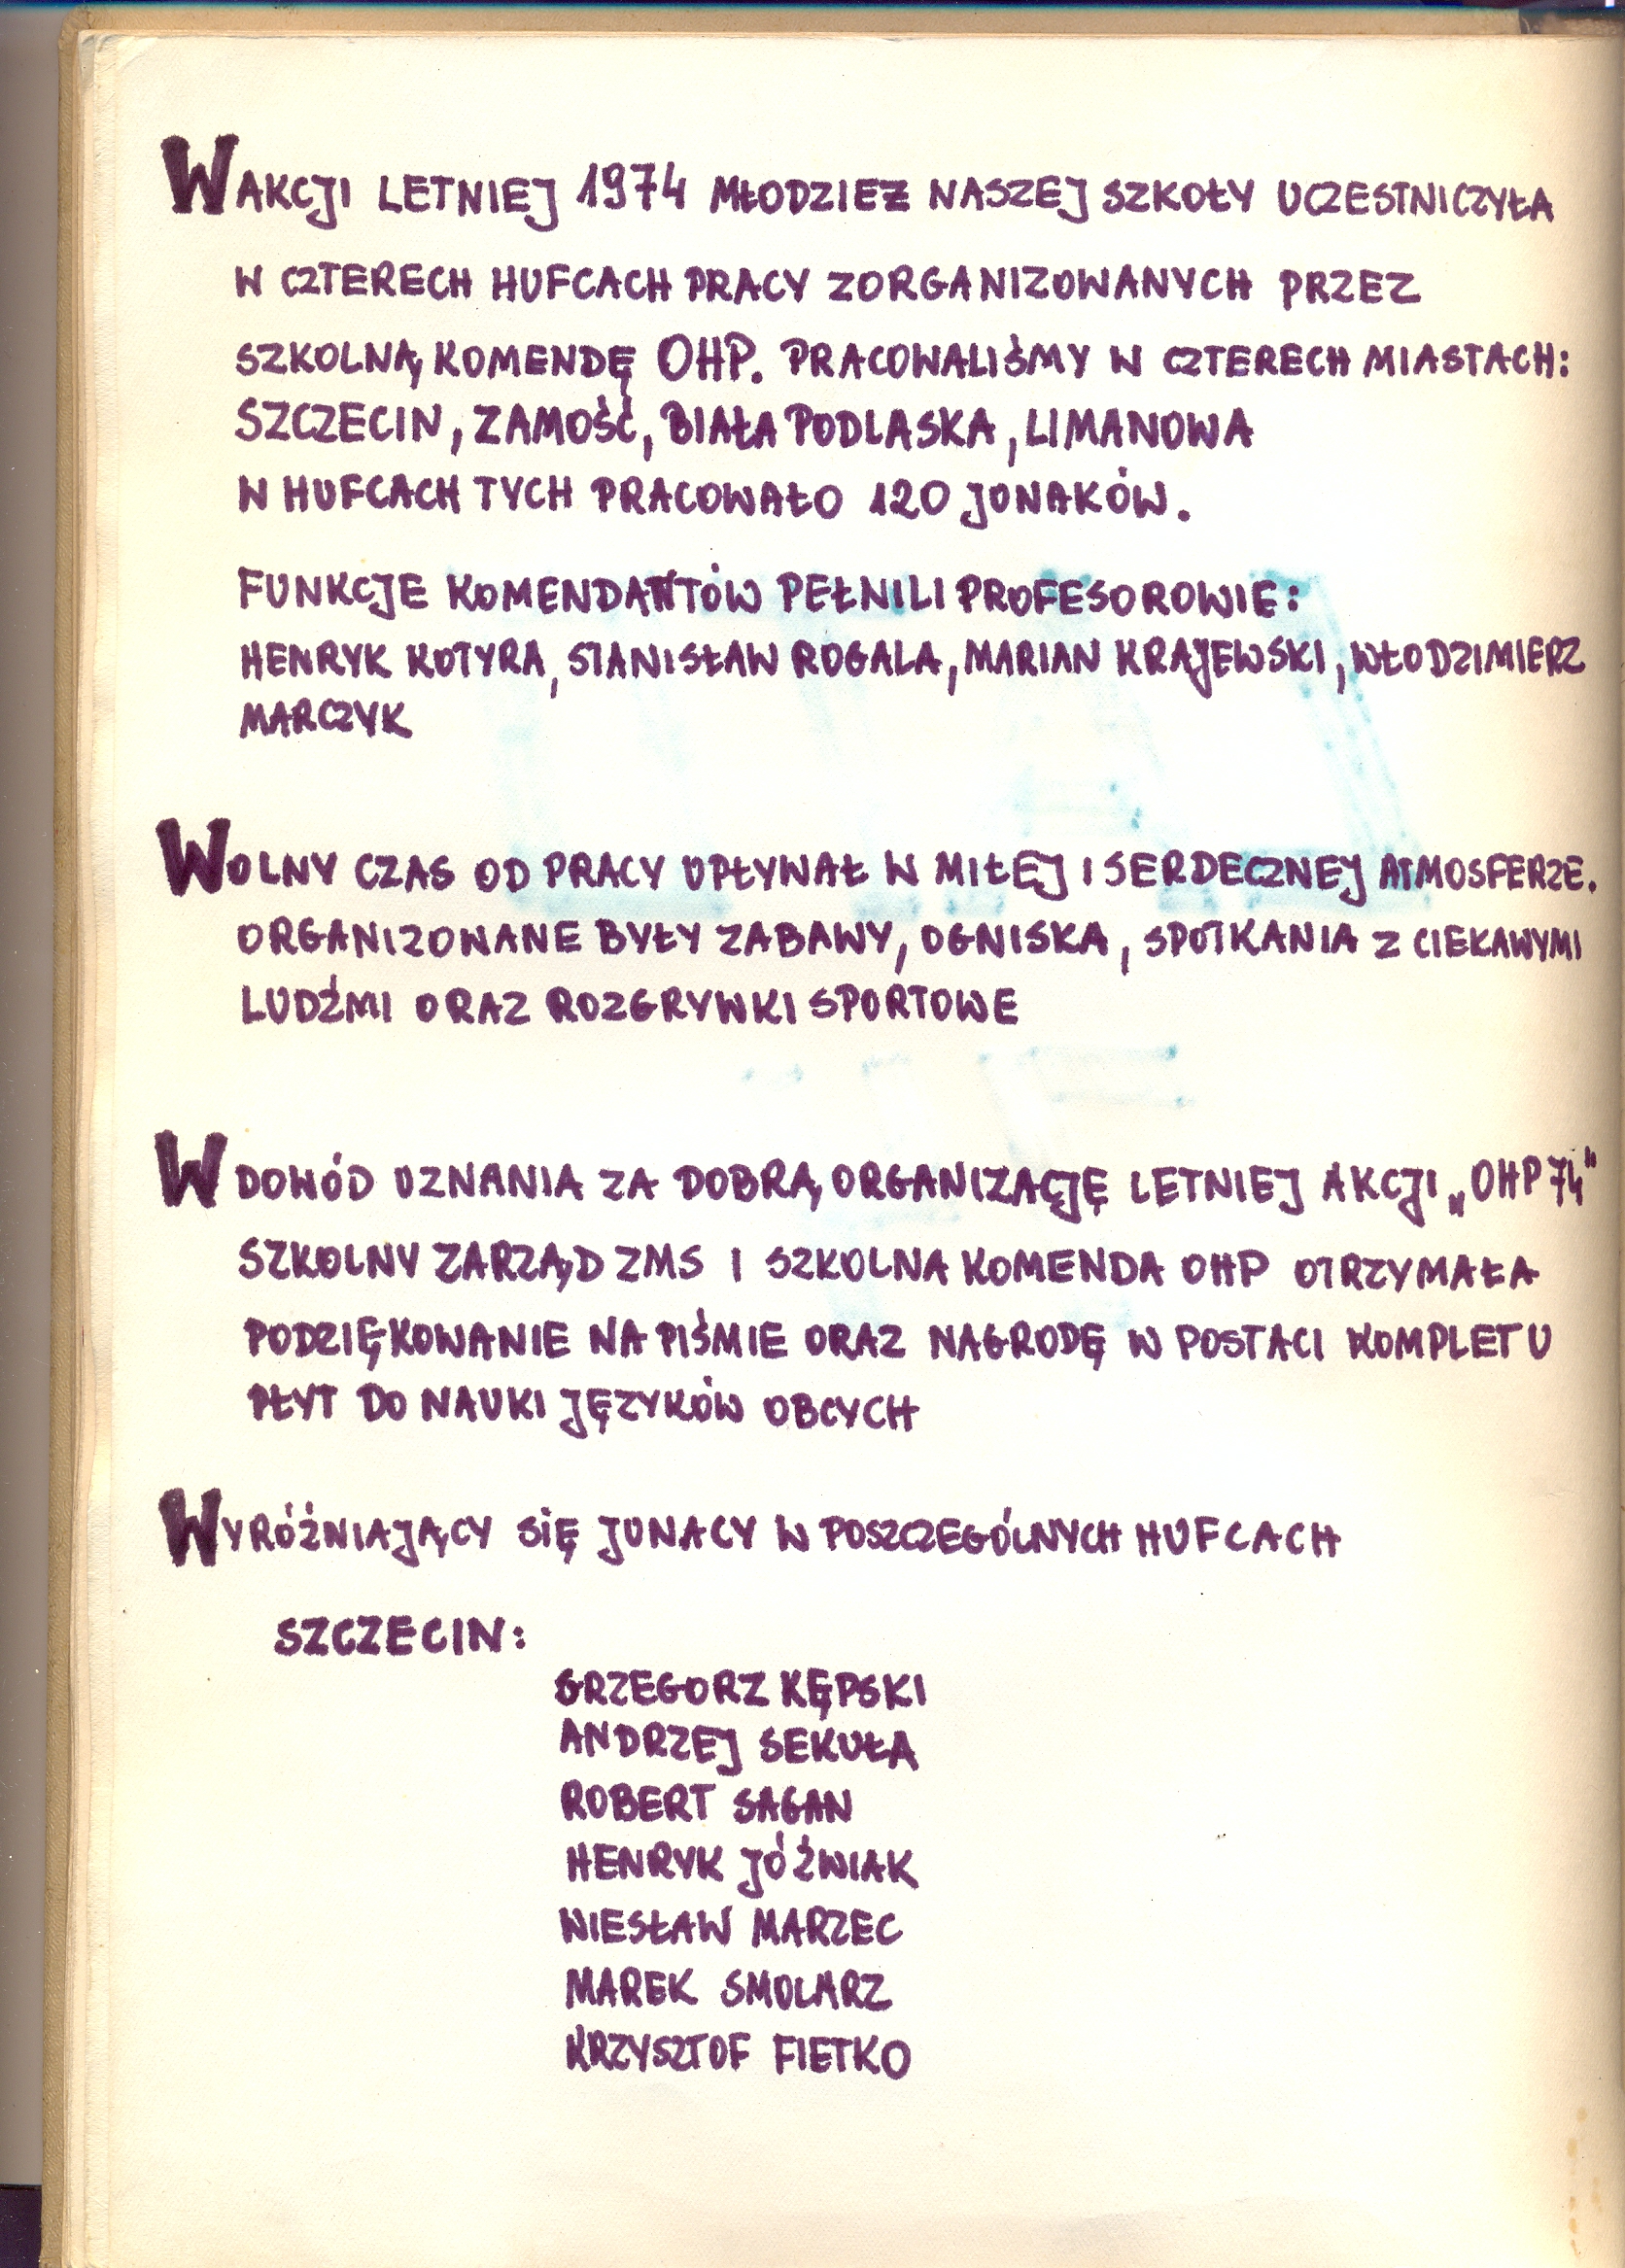 W AKCJI LETNIEJ 1974 MŁODZIEŻ NASZEJ SZKOŁY UCZESTNICZYŁA
W CZTERECH HUFCACH PRACY ZORGANIZOWANYCH PRZEZ
SZKOLNĄ KOMENDĘ OHP. PRACOWALIŚMY W CZTERECH MIASTACH:
SZCZECIN, ZAMOŚĆ, BIAŁA PODLASKA, LIMANOWA
W HUFCACH TYCH PRACOWAŁO 120 JONAKÓW.
FUNKCJE KOMENDANTÓW PEŁNILI PROFESOROWIE:
HENRYK KOTYRA, STANISŁAW ROGALA, MARIAN KRAJEWSKI, WŁODZIMIERZ
MARCZYK
WOLNY CZAS OD PRACY UPŁYWAŁ W MIŁEJ I SERDECZNEJ ATMOSFERZE.
ORGANIZOWANE BYŁY ZABAWY, OGNISKA, SPOTKANIA Z CIEKAWYMI
LUDŹMI ORAZ ROZGRYWKI SPORTOWE
W DOWÓD UZNANIA ZA DOBRĄ ORGANIZACJĘ LETNIEJ AKCJI „OHP 74"
SZKOLNY ZARZĄD ZMS I SZKOLNA KOMENDA OHP OTRZYMAŁA
PODZIĘKOWANIE NA PIŚMIE ORAZ NAGRODĘ W POSTACI KOMPLETU
PŁYT DO NAUKI JĘZYKÓW OBCYCH
WYRÓŻNIAJĄCY SIĘ JUNACY W POSZCZEGÓLNYCH HUFCACH
SZCZECIN:
GRZEGORZ KĘPSKI
ANDRZEJ SEKUŁA
ROBERT SAGAN
HENRYK JÓŹWIAK
WIESŁAW MARZEC
MAREK SMOLARZ
KRZYSZTOF FIETKO